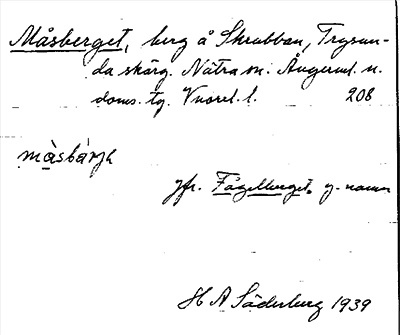 Måsberget, berg å Skrubban, Trysun-
da skärg. Nätra sn. Ångerml. n.
doms. tg. Vuorel. l. 208
måsbärjk
jfr. Fågelberget, g. namn
H A Söderberg 1939